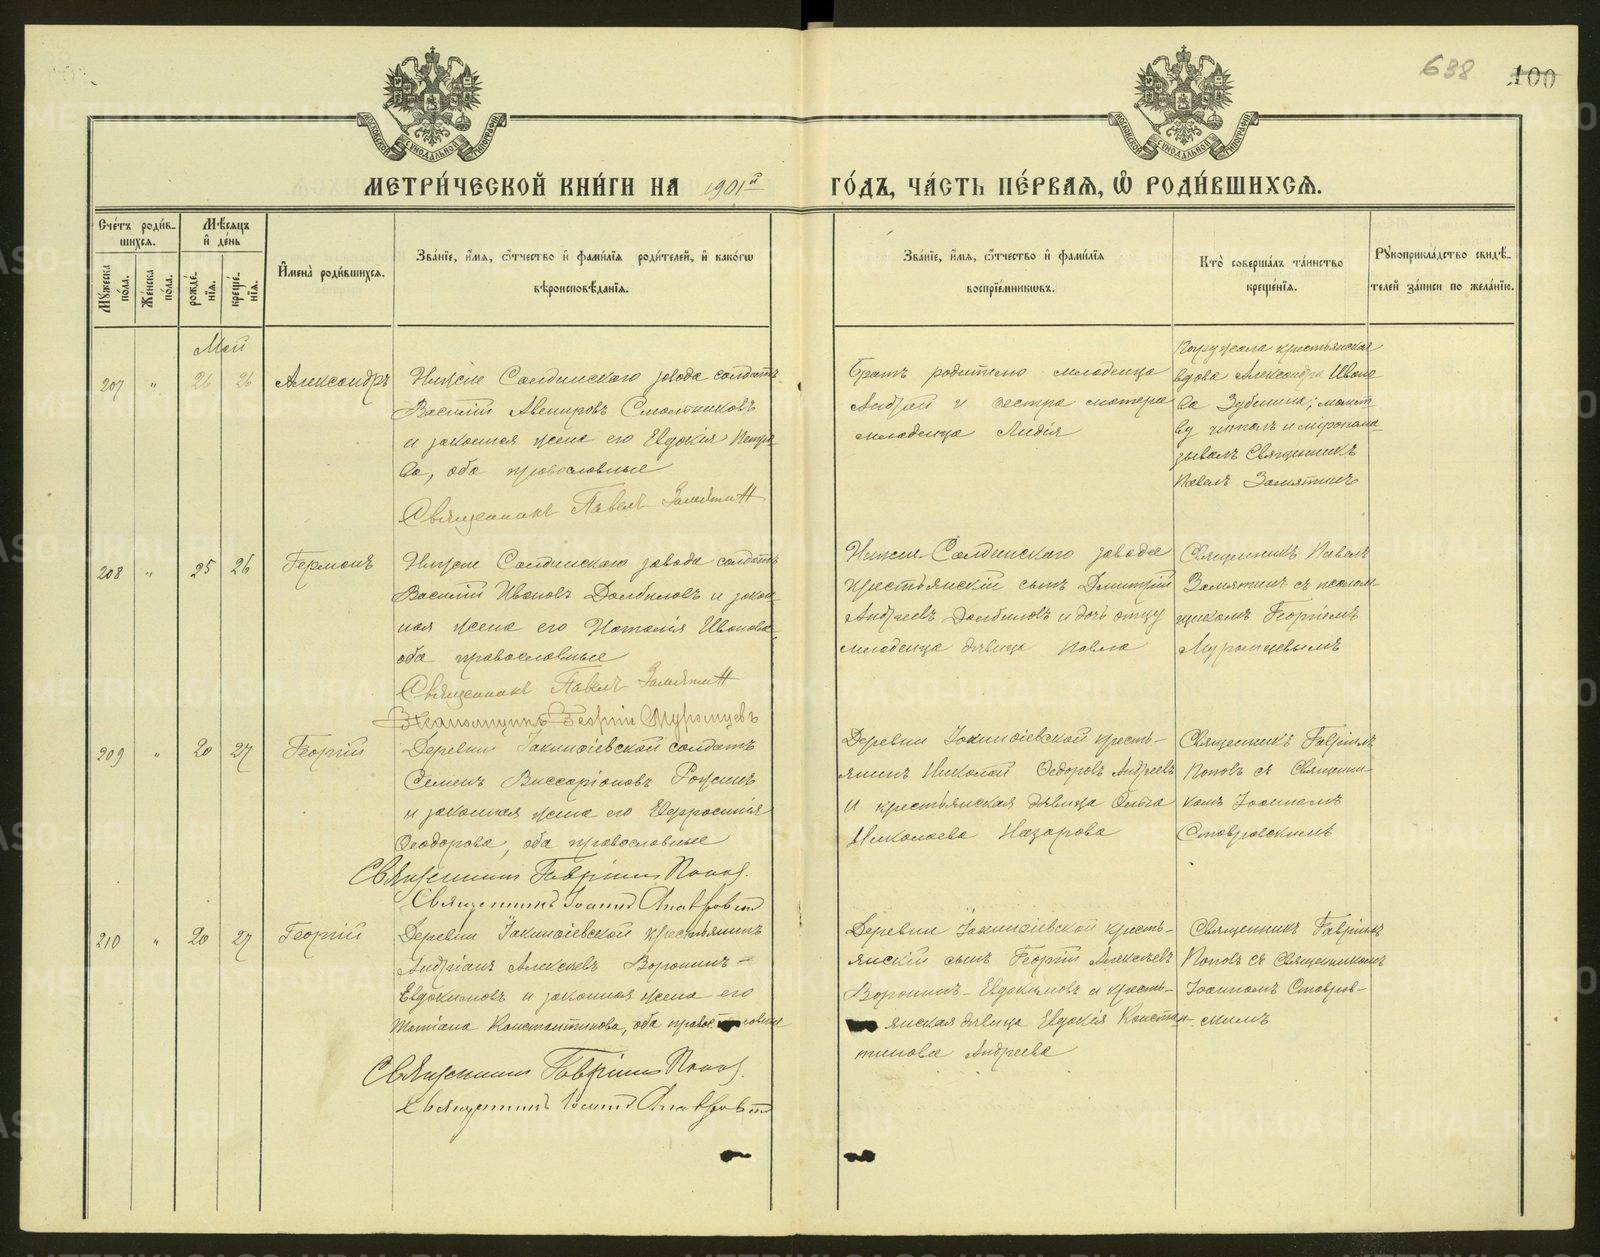 638
100
МОСКОВСКОЙ СѴНОДАЛЬНОЙ ТИПОГРАФІИ
МОСКОВСКОЙ СѴНОДАЛЬНОЙ ТИПОГРАФІИ
МЕТРИ́ЧЕСКОЙ КНИ́ГИ НА 1901й ГО́ДЪ, ЧА́СТЬ ПЕ́РВАѦ, Ѽ РОДИ́ВШИХСѦ.
Сче́тъ роди́в-
шихсѧ.
Мꙋ́жеска по́ла.
Же́нска по́ла.
Мѣ́сѧцъ
и҆ де́нь
рожде́-
нїѧ.
креще́-
нїѧ.
И҆мена̀ роди́вшихсѧ.
Зва́нїе, и҆́мѧ, ѻ҆́тчество и҆ фамилїѧ роди́телей, и҆ како́гѡ
вѣроисповѣ́данїѧ.
Зва́нїе, и҆́мѧ, ѻ҆́тчество и҆ фами́лїѧ
воспрїе́мникѡвъ.
Кто̀ соверша́лъ та́инство
креще́нїѧ.
Рꙋкоприкла́дство свидѣ́-
телей за́писи по жела́нїю.
Май
207 " 26 26 Александръ
Нижне Салдинскаго завода солдатъ
Василій Авенировъ Смольниковъ
и законная жена его Евдокія Петро-
ва, оба православные
Священникъ Павелъ Замятинъ
Братъ родителю младенца
Андрей и сестра матери
младенца Лидія
Погружала крестьянская
вдова Александра Ивано
ва Зубинина; молит-
ву читалъ и миропома-
зывалъ Священникъ
Павелъ Замятинъ
208 " 25 26 Германъ
Нижне Салдинскаго завода солдатъ
Василій Ивановъ Долбиловъ и закон-
ная жена его Наталія Иванова,
оба православные
Священникъ Павелъ Замятинъ
Псаломщикъ Георгій Муромцевъ
Нижне-Салдинскаго завода
крестьянскій сынъ Дмитрій
Андреевъ Долбиловъ и дочь отцу
младенца дѣвица Павла
Священникъ Павелъ
Замятинъ съ псалом-
щикомъ Георгіемъ
Муромцевымъ
209 " 20 27 Георгій
Деревни Іакинѳіевской солдатъ
Семенъ Виссаріоновъ
и законная жена его Евфросинія
Ѳеодорова, оба православные
Священникъ Гавріилъ Поповъ.
Священникъ Іоаннъ Ставровскій
Деревни Іакинѳіевской кресть-
янинъ Николай Ѳедоровъ Андреевъ
и крестьянская дѣвица Ольга
Николаева Назарова
Священникъ Гавріилъ
Поповъ съ Священни-
комъ Іоанномъ
Ставровскимъ
210 " 20 27 Георгій
Деревни Іакинѳіевской крестьянинъ
Андріанъ Алексѣевъ Воронинъ-
Евдокимовъ и законная жена его
Татіана Константинова, оба православные
Священникъ Гавріилъ Поповъ.
Священникъ Іоаннъ Ставровскій
Деревни Іакинѳіевской кресть-
янскій сынъ Георгій Алексѣевъ
Воронинъ-Евдокимовъ и кресть-
янская дѣвица Евдокія Констан-
тинова Андреева
Священникъ Гавріилъ
Поповъ съ Священникомъ
Іоанномъ Ставров-
скимъ
METRIKI.GASO-URAL.RU